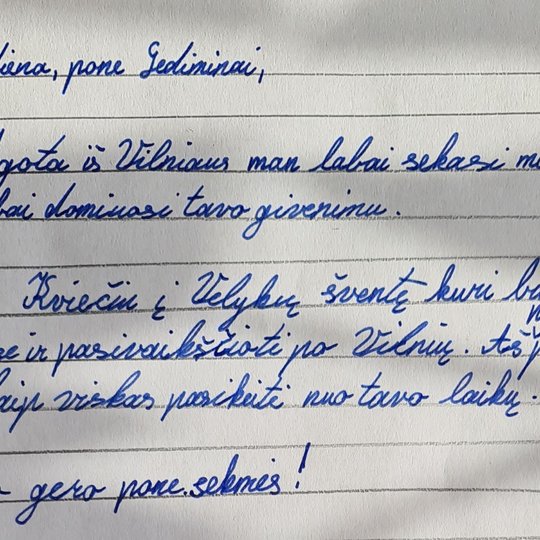 iena, pone Gediminai,
gota iš Vilniaus man labai sekasi m
bai dominuosi tavo givenimu.
Kviečiu į Velykų šventę kuri b
se ir pasivaikščioti po Vilnių. Aš
aip viskas pasikeitė nuo tavo laikų.
gero pone.sekmės!